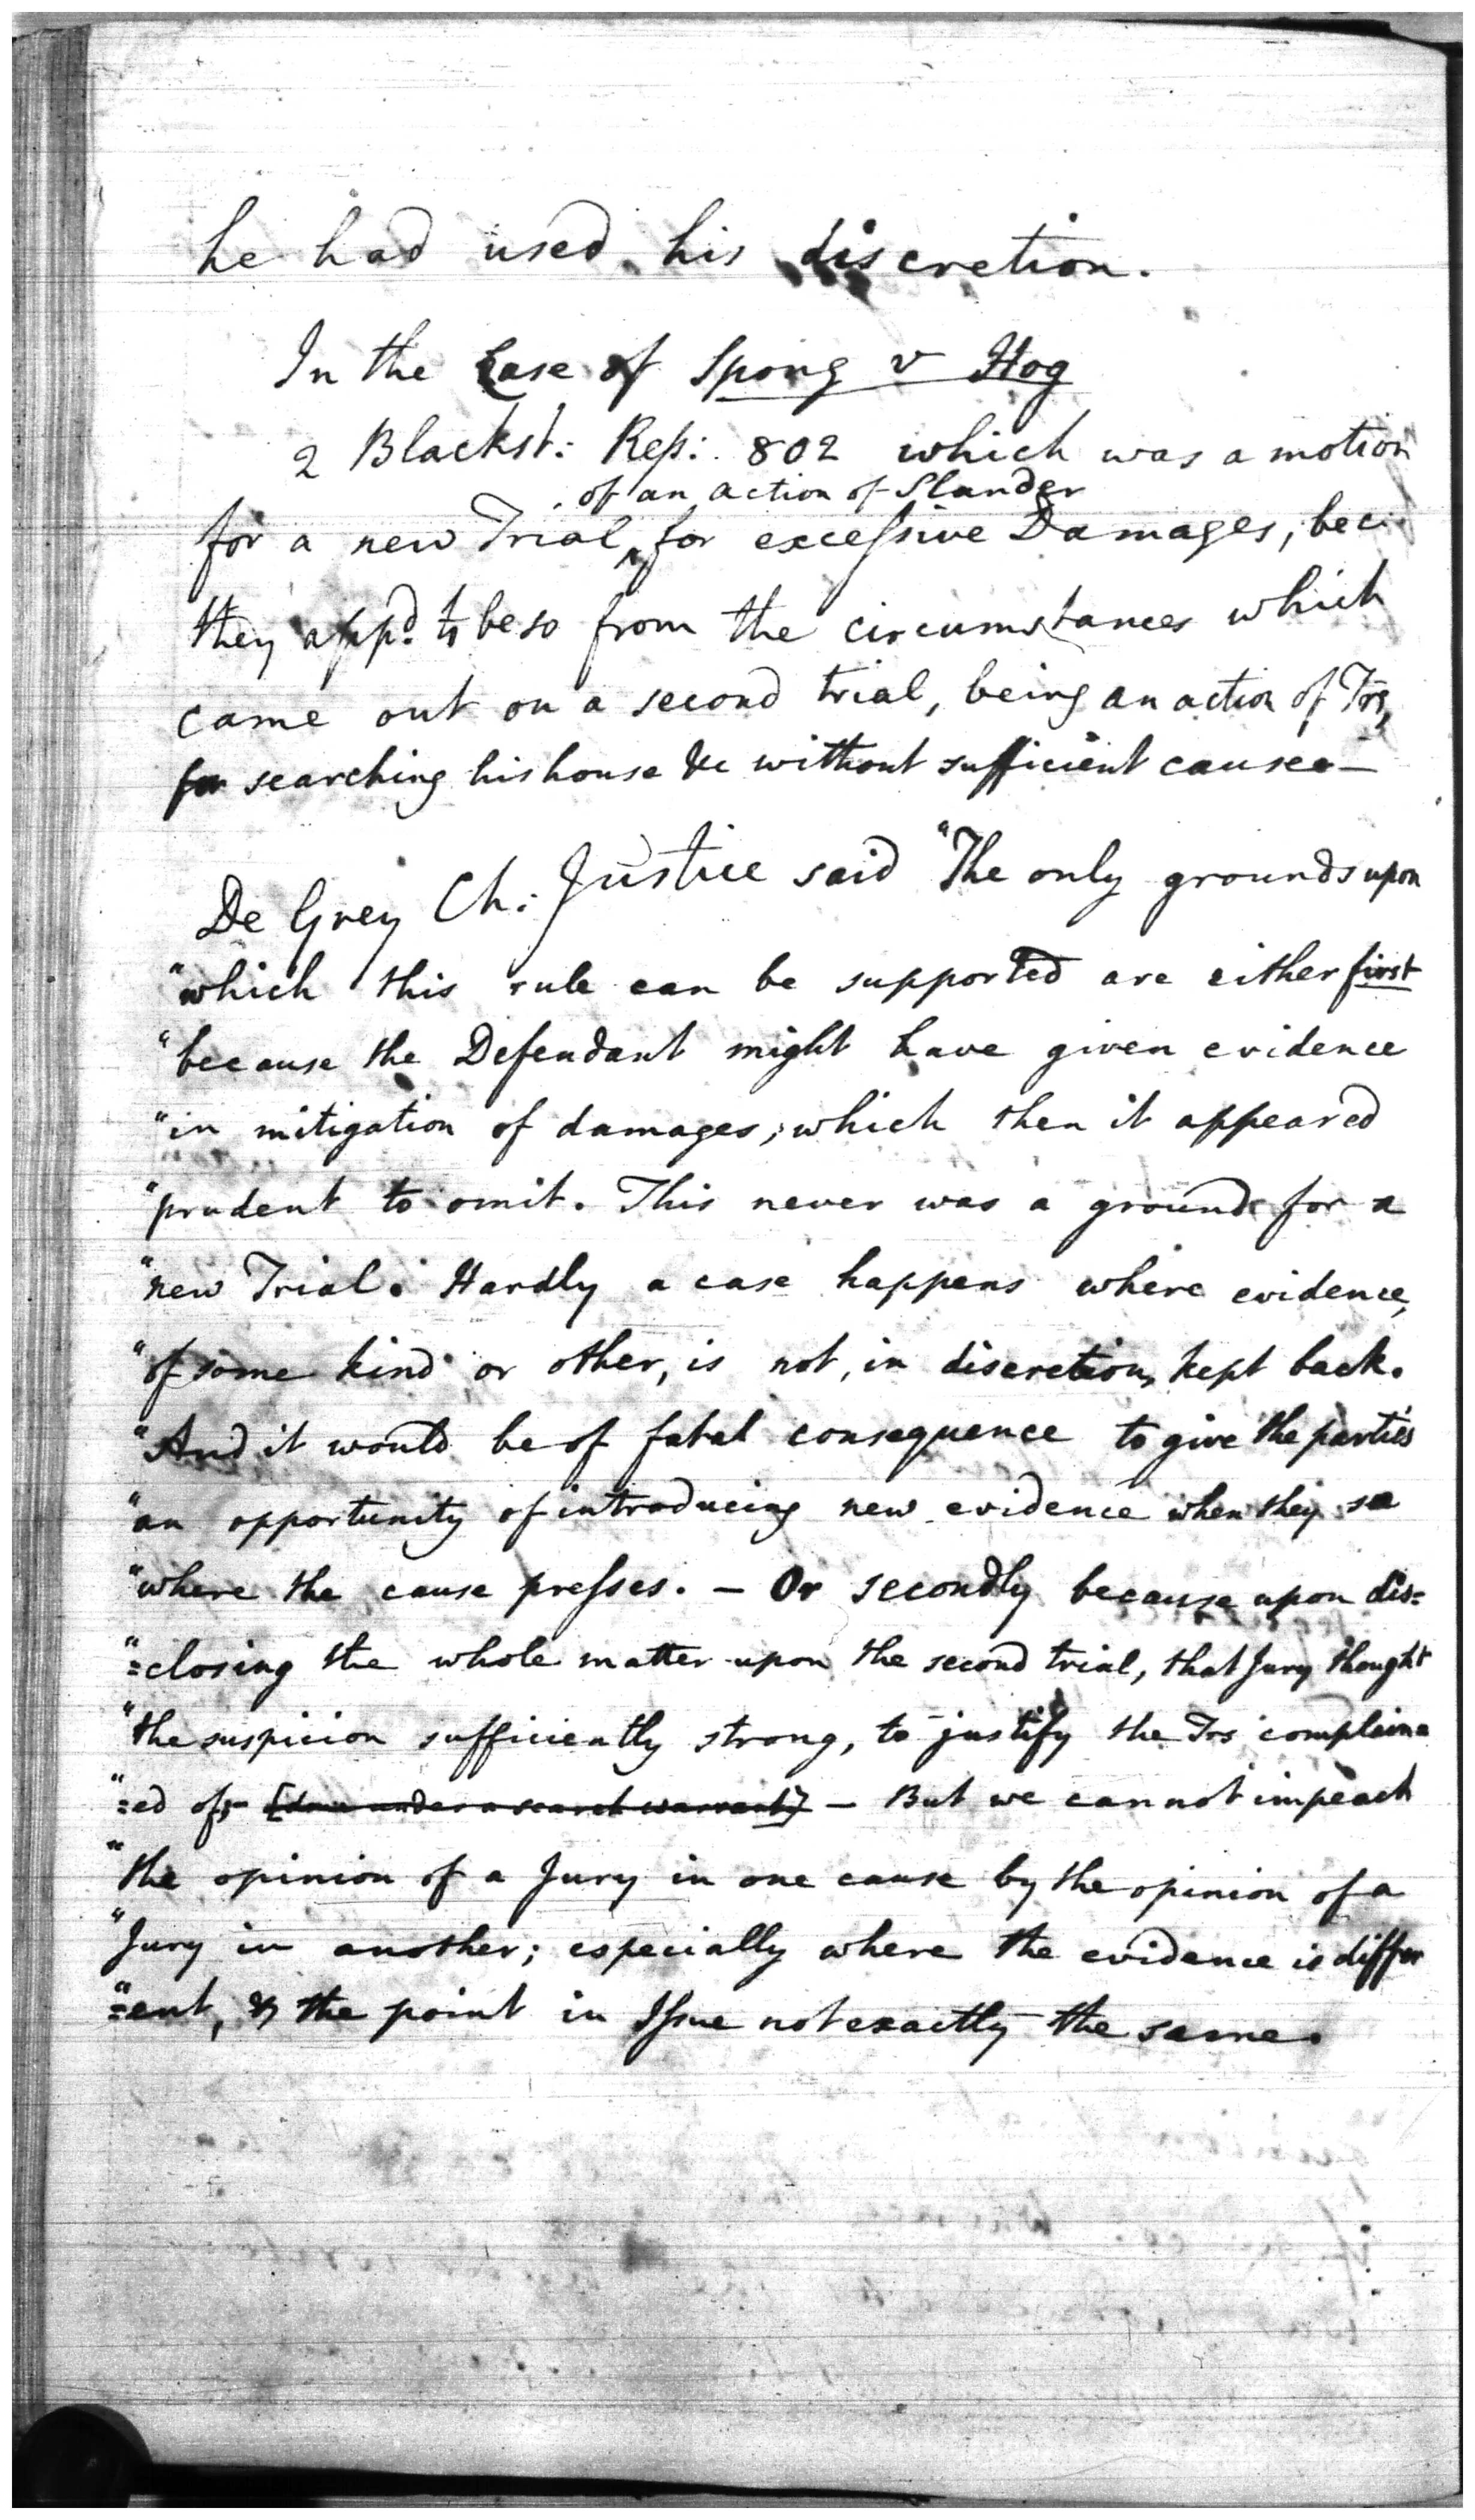 he had used his discretion.
In the Case of Spong v Hog
2 Blackst: Rep: 802 which was a motion
of an action of Slander
for a new Trial, for excessive Damages, bec:
they app.d to be so from the circumstances which
came out on a second trial, being an action of Trs,
for searching his house &c without sufficient cause—
De Grey Ch: Justice said "The only grounds upon
"which this rule can be supported are either first
"because the Defendant might have given evidence
"in mitigation of damages, which then it appeared
"prudent to omit. This never was a ground for a
"new Trial. Hardly a case happens where evidence,
"of some kind or other, is not, in discretion, kept back.
"And it would be of fatal consequence to give the parties
"an opportunity of introducing new evidence when they se
"where the cause presses. — Or secondly because upon dis=
"=closing the whole matter upon the second trial, that Jury thought
"the suspicion sufficiently strong, to justify the Trs complain
"=ed of, [done under a search warrant] — But we cannot impeach
"the opinion of a Jury in one cause by the opinion of a
"Jury in another; especially where the evidence is differ
"=ent, & the point in Issue not exactly the same.